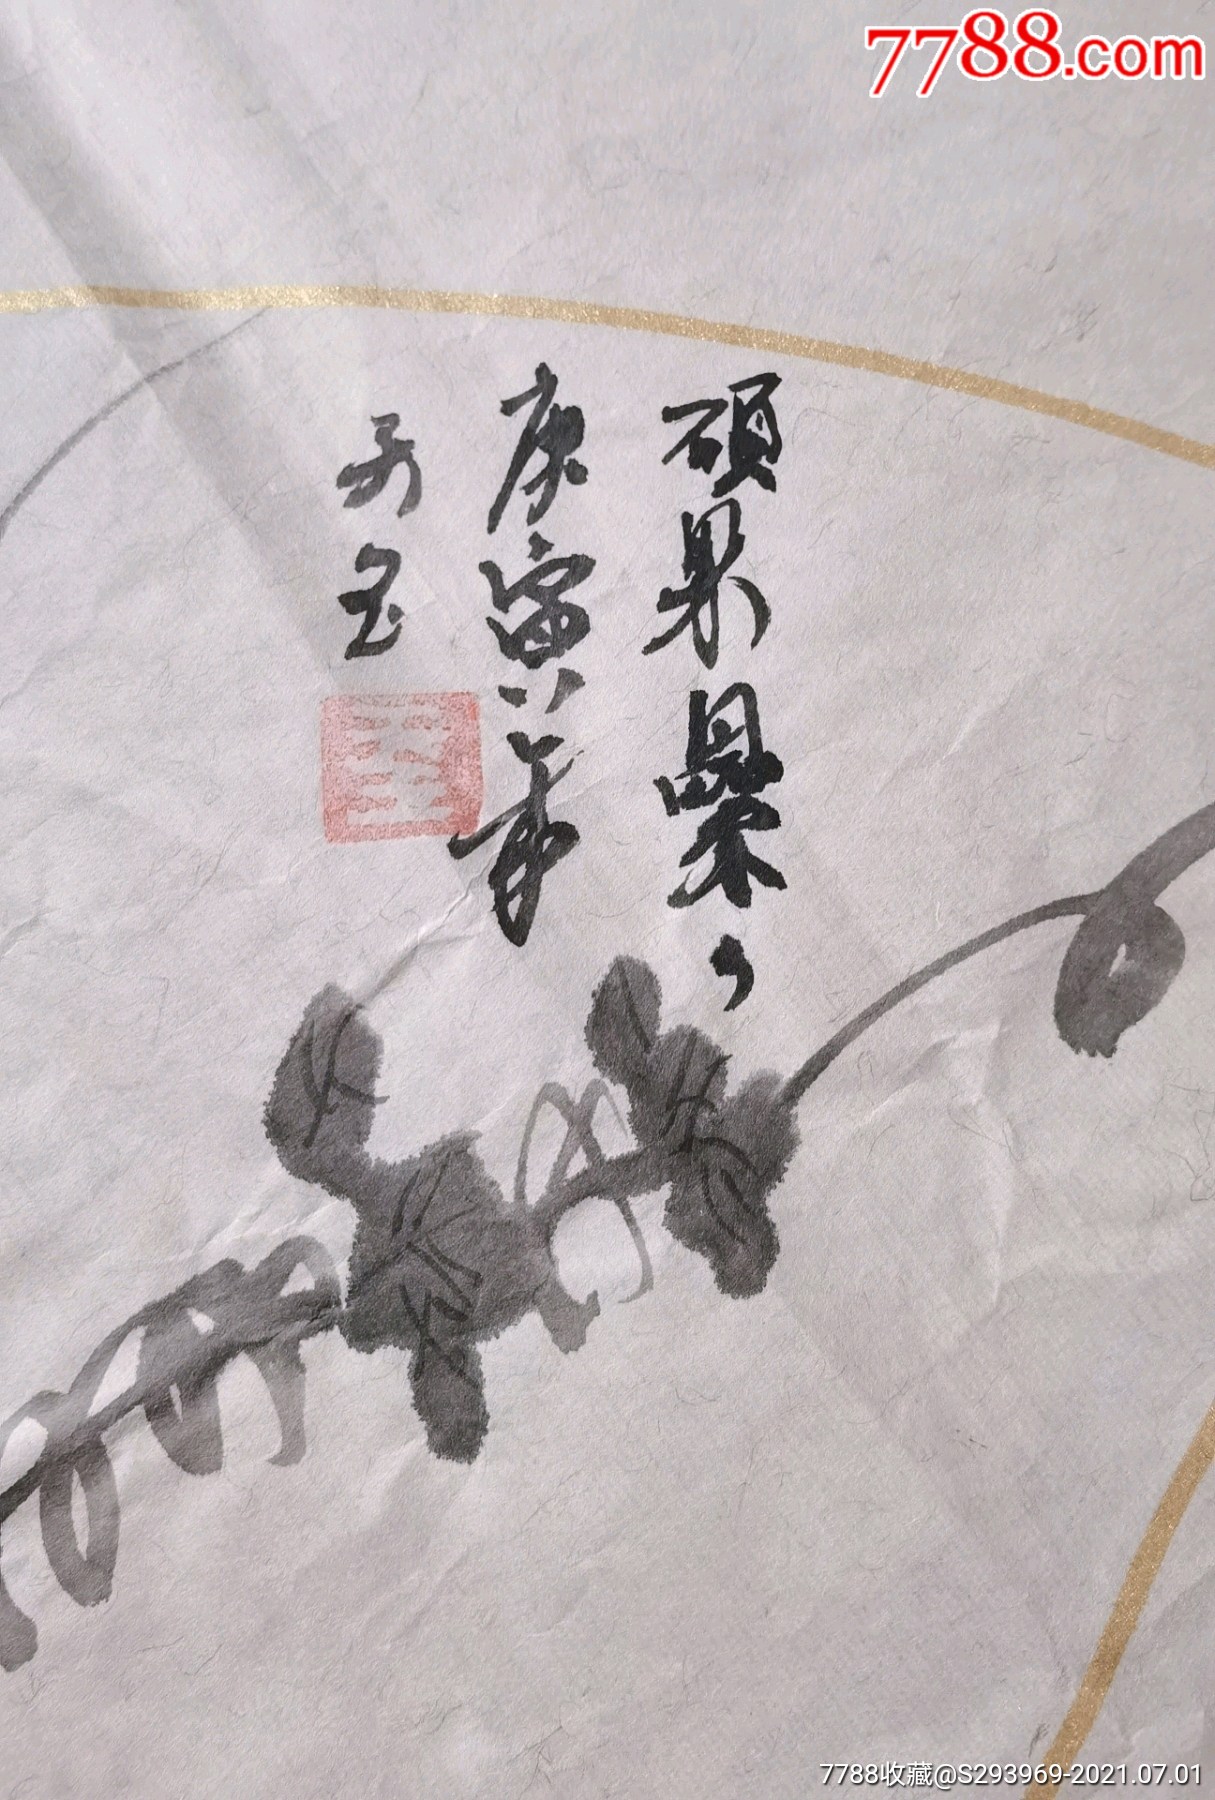 7788.com
碩果纍々
庚寅年
7788收藏@S293969-2021.07.01